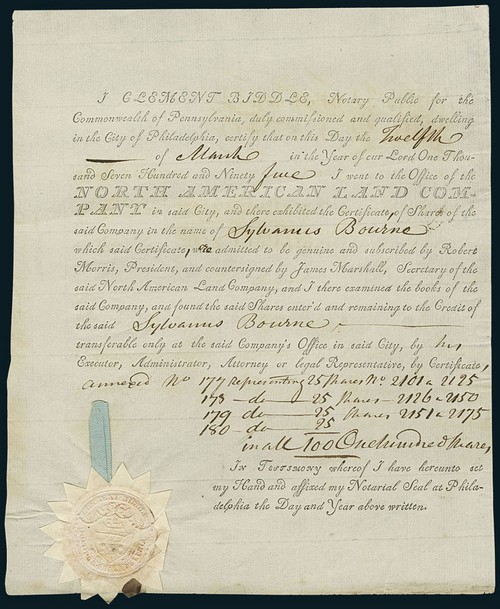 I CLEMENT BIDDLE, Notary Public for the
Commonwealth of Pennsylvania, duly commissioned and qualified, dwelling
in the City of Philadelphia, certify that on this Day the Twelfth
of March in the Year of our Lord One Thou-
sand Seven Hundred and Ninety five I went to the Office of the
NORTH AMERICAN LAND COM-
PANY in said City, and there exhibited the Certificates of Shares of the
said Company in the name of Sylvanus Bourne
which said Certificates were admitted to be genuine and subscribed by Robert
Morris, President, and countersigned by James Marshall, Secretary of the
said North American Land Company, and I there examined the books of the
said Company, and found the said Shares enter'd and remaining to the Credit of
the said Sylvanus Bourne
transferable only at the said Company's Office in said City, by his
Executor, Administrator, Attorney or legal Representative, by Certificate,
annexed No 177 Representing 25 Shares No 2101 a 2125
178 - do - 25 Shares - 2126 a 2150
179 do - 25 Shares 2151 a 2175
180 - do - 25
in all 100 One hundred Shares,
In Testimony whereof I have hereunto set
my Hand and affixed my Notarial Seal at Phila-
delphia the Day and Year above written.